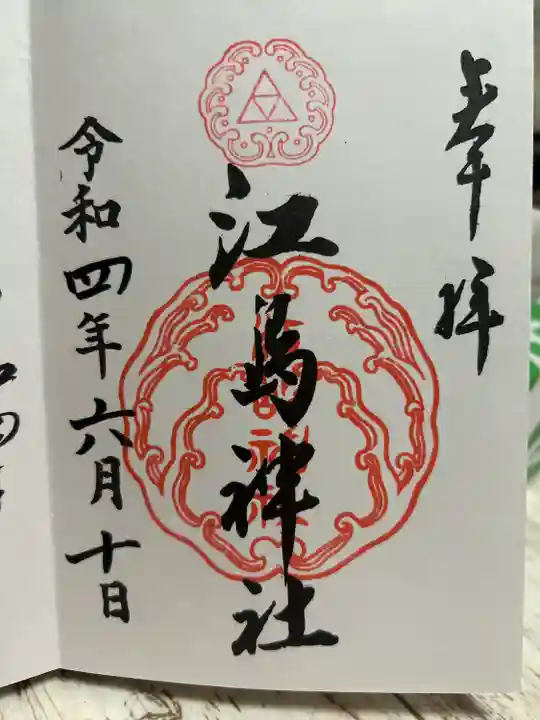 奉拝
江島神社
令和四年六月十日